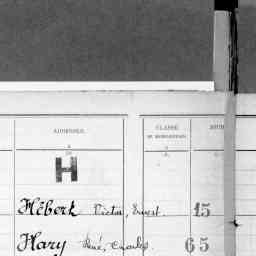 ADRESSES. CLASSE JOUR
DE MOBILISATION.
H
Hébert Victor, Ernest. 15
Hary René, Charles. 65